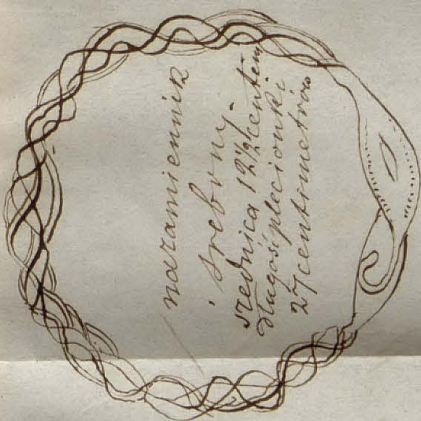 naramiennik
srebrny.
średnica 12 1/2 centim
długość plecionki
27 centimetrów